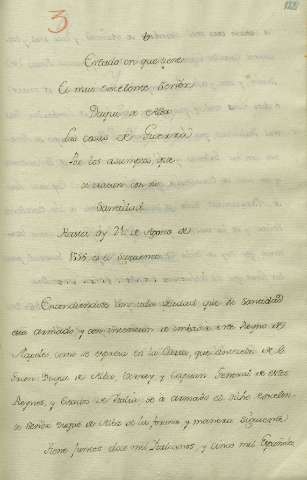 3
Estado en que tiene
El muy Excelente Señor
Duque de Alba
Las cosas de Guerra
Por los asumptos que
se tratan con su
Santidad
Hasta oy 21 de Agosto de
1556 es el siguiente
Entendiendose con toda verdad que Su Santidad
está armado y con intencion de imbadir este Reyno de
Napoles como se expresa en la Carta, que
Señor Duque de Alba, Virrey, y Capitan General de estos
Reynos, y Estados de Italia se a armado el dicho Excelen-
te Señor Duque de Alba de la forma y manera siguiente
Tiene juntos doce mil Italianos, y cinco mil Españoles